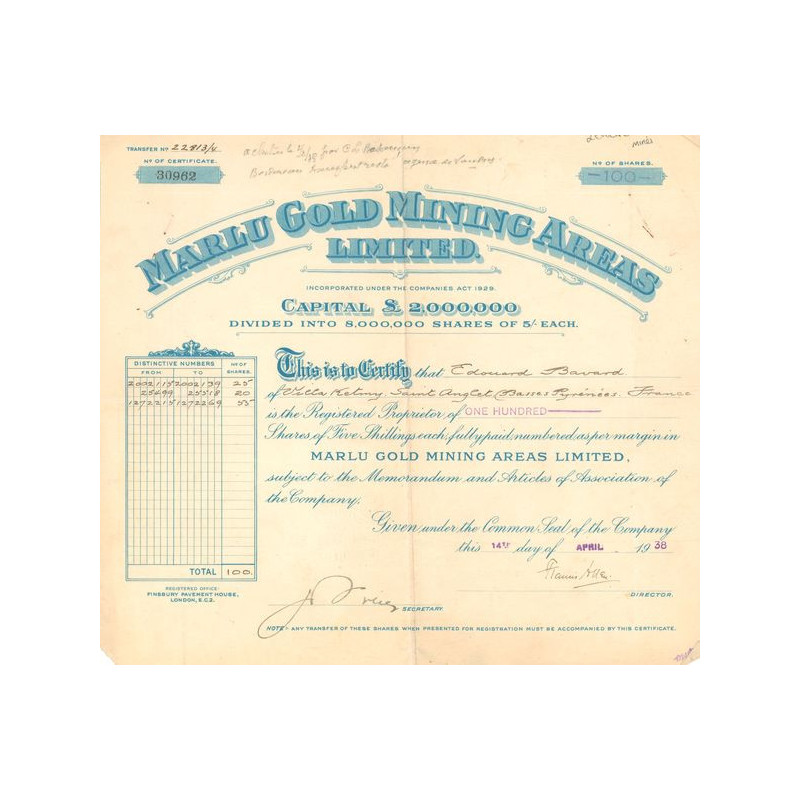 TRANSFER Nº 22813/4
Nº OF CERTIFICATE.
30962
Mines
Nº OF SHARES.
-100-
MARLU GOLD MINING AREAS
LIMITED.
INCORPORATED UNDER THE COMPANIES ACT 1929.
CAPITAL £ 2,000,000
DIVIDED INTO 8,000,000 SHARES OF 5/- EACH.
DISTINCTIVE NUMBERS
FROM TO
Nº OF SHARES.
2002115 2002139 25
25499 25518 20
1272215 1272269 55
TOTAL 100.
REGISTERED OFFICE:
FINSBURY PAVEMENT HOUSE,
LONDON, E.C.2.
This is to Certify that Edouard Bavard
of Villa Ketmy, Saint Anglet (Basses Pyrénées, France
is the Registered Proprietor of ONE HUNDRED
Shares, of Five Shillings each, fully paid, numbered as per margin in
MARLU GOLD MINING AREAS LIMITED,
subject to the Memorandum and Articles of Association of
the Company.
Given under the Common Seal of the Company
this 14TH day of APRIL 1938
DIRECTOR.
SECRETARY
NOTE:-ANY TRANSFER OF THESE SHARES WHEN PRESENTED FOR REGISTRATION MUST BE ACCOMPANIED BY THIS CERTIFICATE.